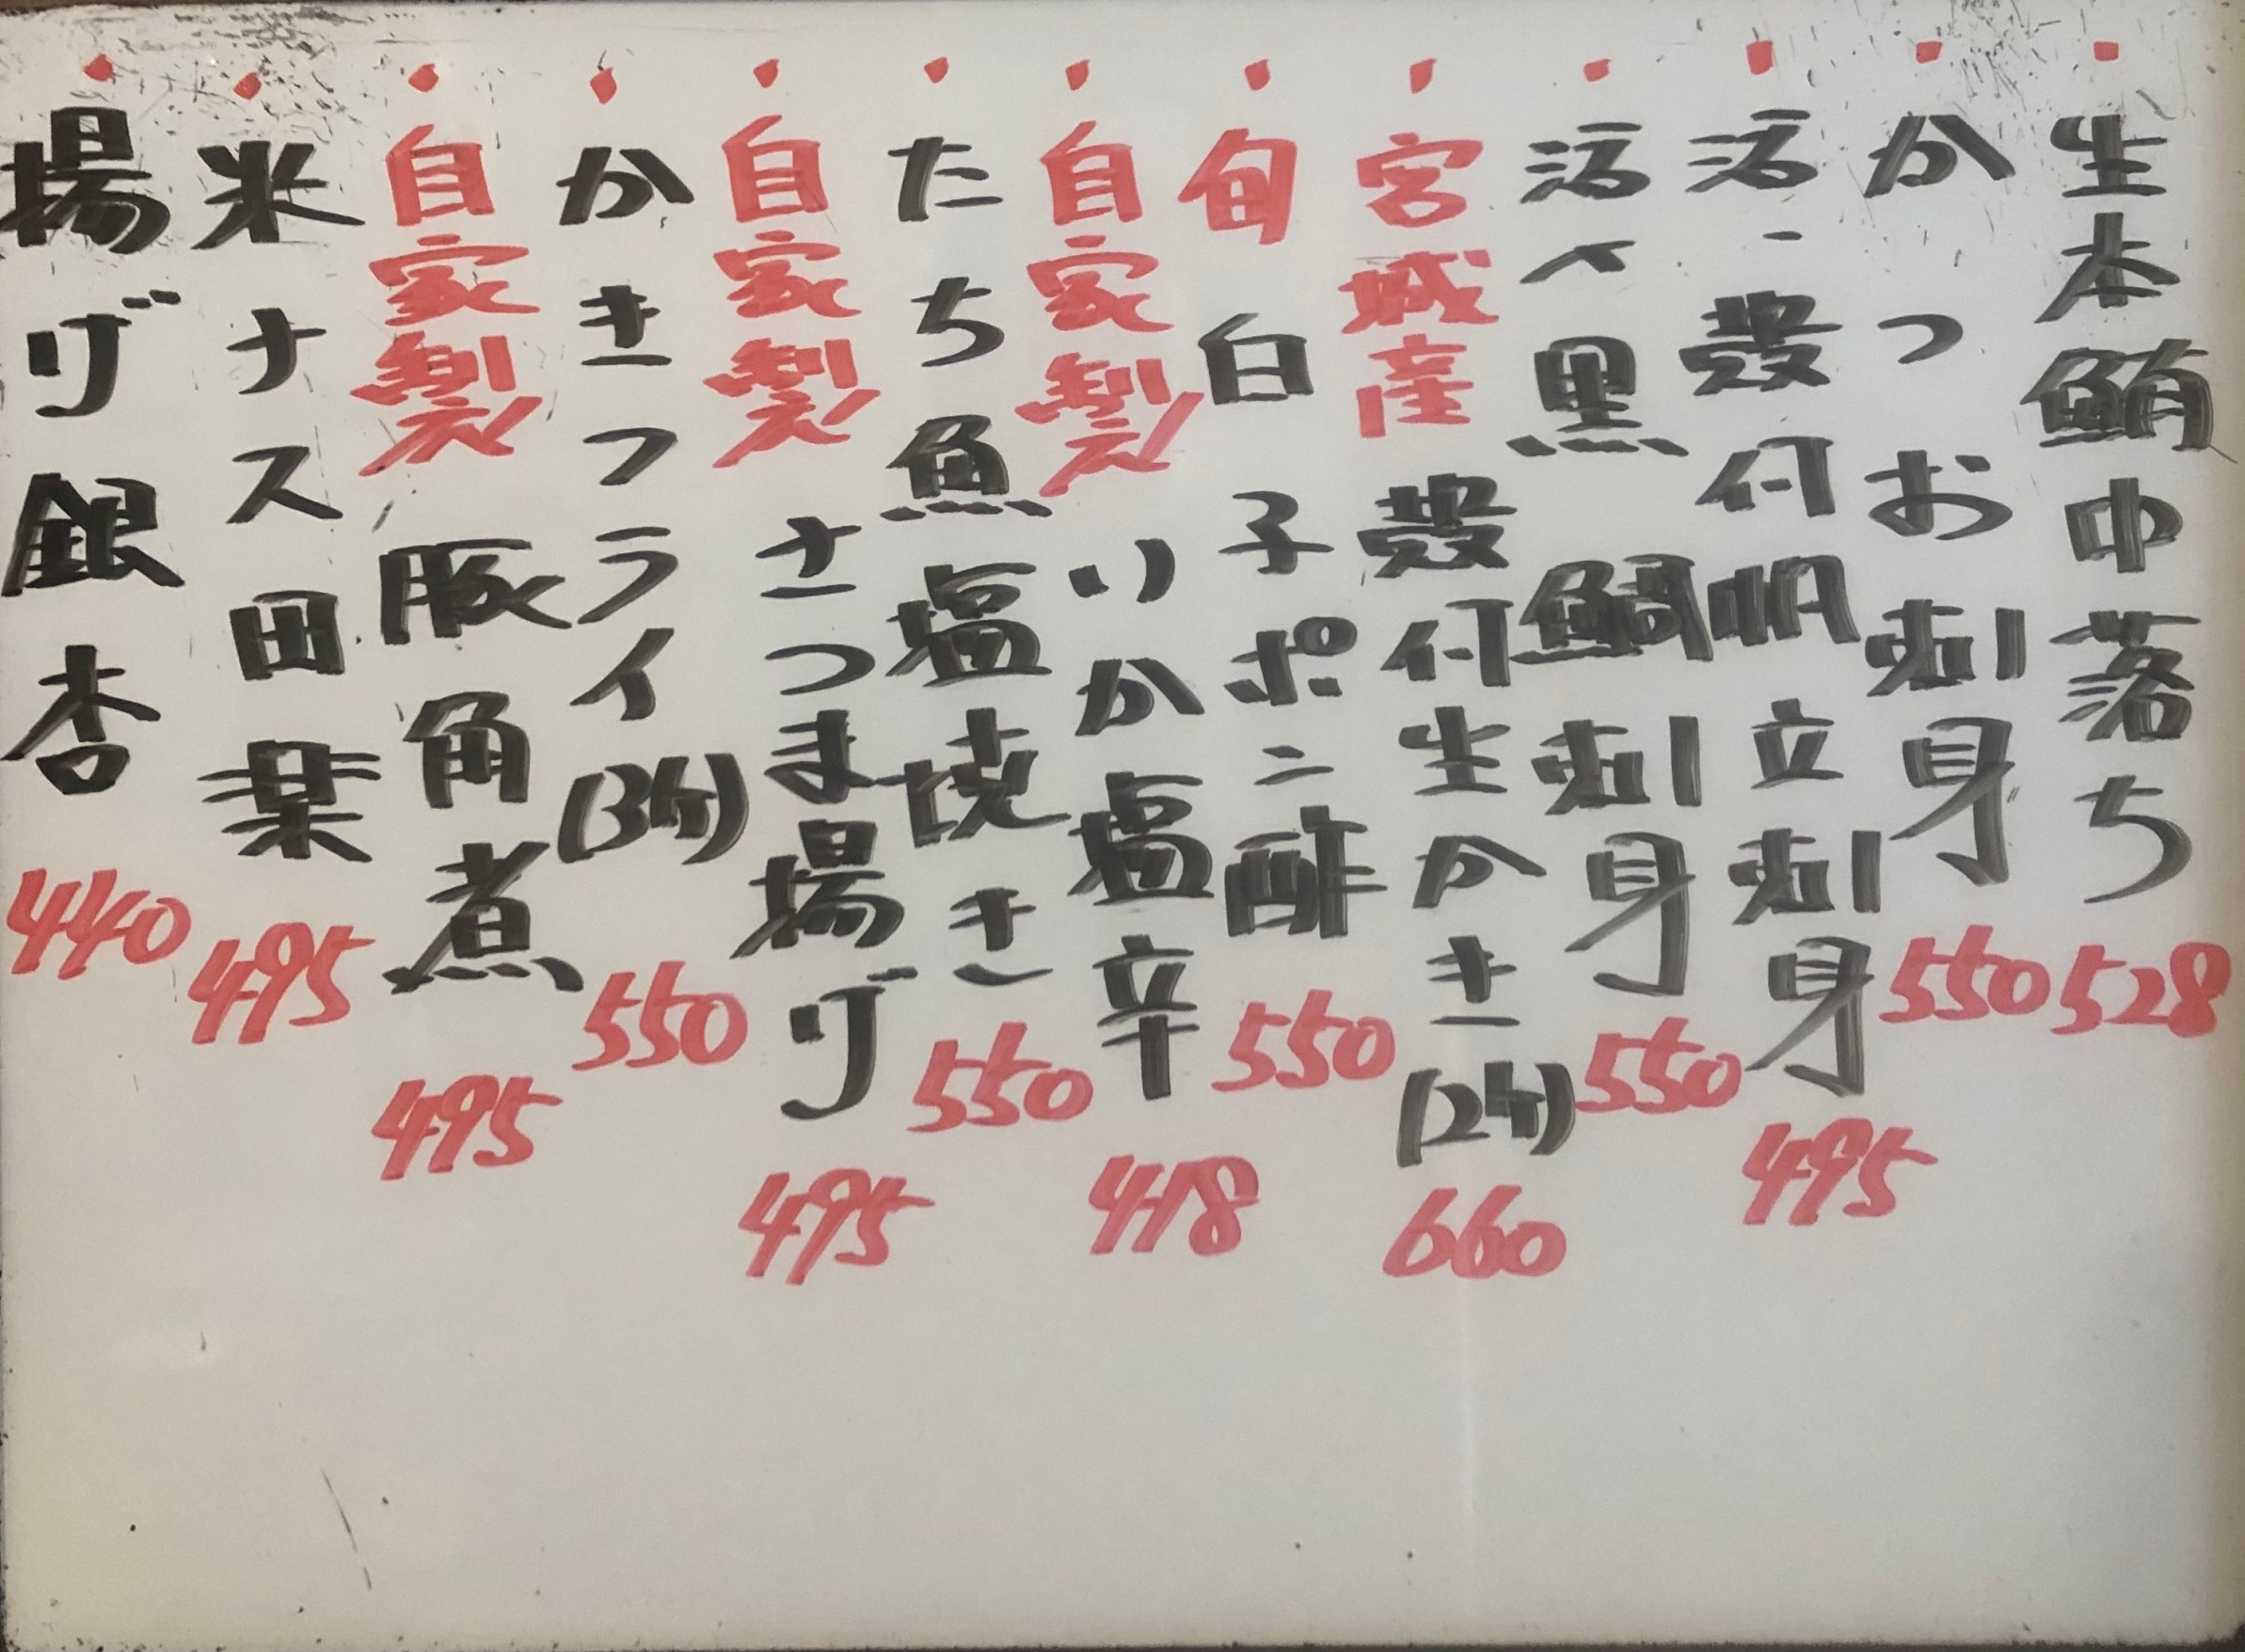 ・生本鮪中落ち 528
・かつお刺身 550
・活・殻付帆立刺身 495
・活〆黒鯛刺身 550
・宮城産 殻付生かき(2ケ) 660
・旬 白子ポン酢 550
・自家製 いか塩辛 418
・たち魚塩焼き 550
・自家製 さつま揚げ 495
・かきフライ(3ケ) 550
・自家製 豚角煮 495
・米ナス田楽 495
・揚げ銀杏 440